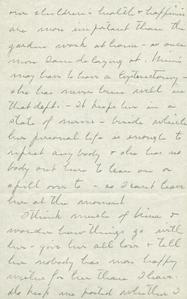 our children - health & happiness
are more important than the
garden work at home - so once
more I am delaying it. Mimi
may have to have a hysterectomy -
she has never been well in
that dept. - It keeps her in a
state of nerves - beside which
her personal life is enough to
upset anybody & she has no
body but here to lean on or
spill over to - so I can't leave
her at the moment
I think much of him &
wonder how things go with
her - give her all love & tell
her nobody has more happy
wishes for her than I have.
Do keep me posted whether I